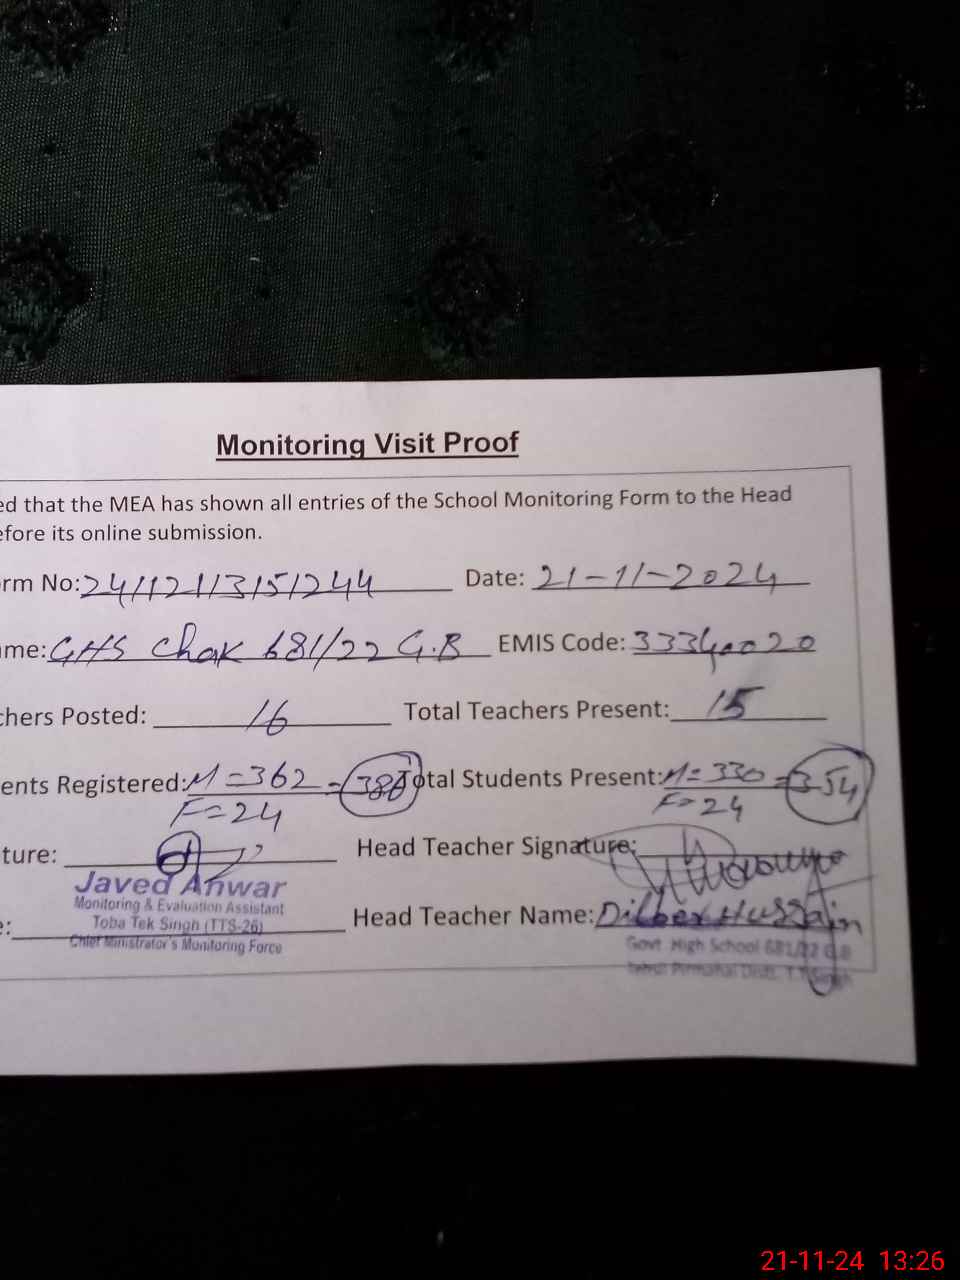 Monitoring Visit Proof
ed that the MEA has shown all entries of the School Monitoring Form to the Head
efore its online submission.
rm No: 24112113151244 Date: 21-11-2024
me: GHS Chak 681/22 G.B EMIS Code: 33340020
chers Posted: 16 Total Teachers Present: 15
ents Registered: M=362 = 386 Total Students Present: M=330 = 354
F=24 F=24
ture: Head Teacher Signature:
Javed Anwar
Monitoring & Evaluation Assistant
Toba Tek Singh (TTS-26)
Chief Ministrator's Monitoring Force
e: Head Teacher Name: Dilber Hussain
Govt. High School 681/22 G.B
21-11-24 13:26